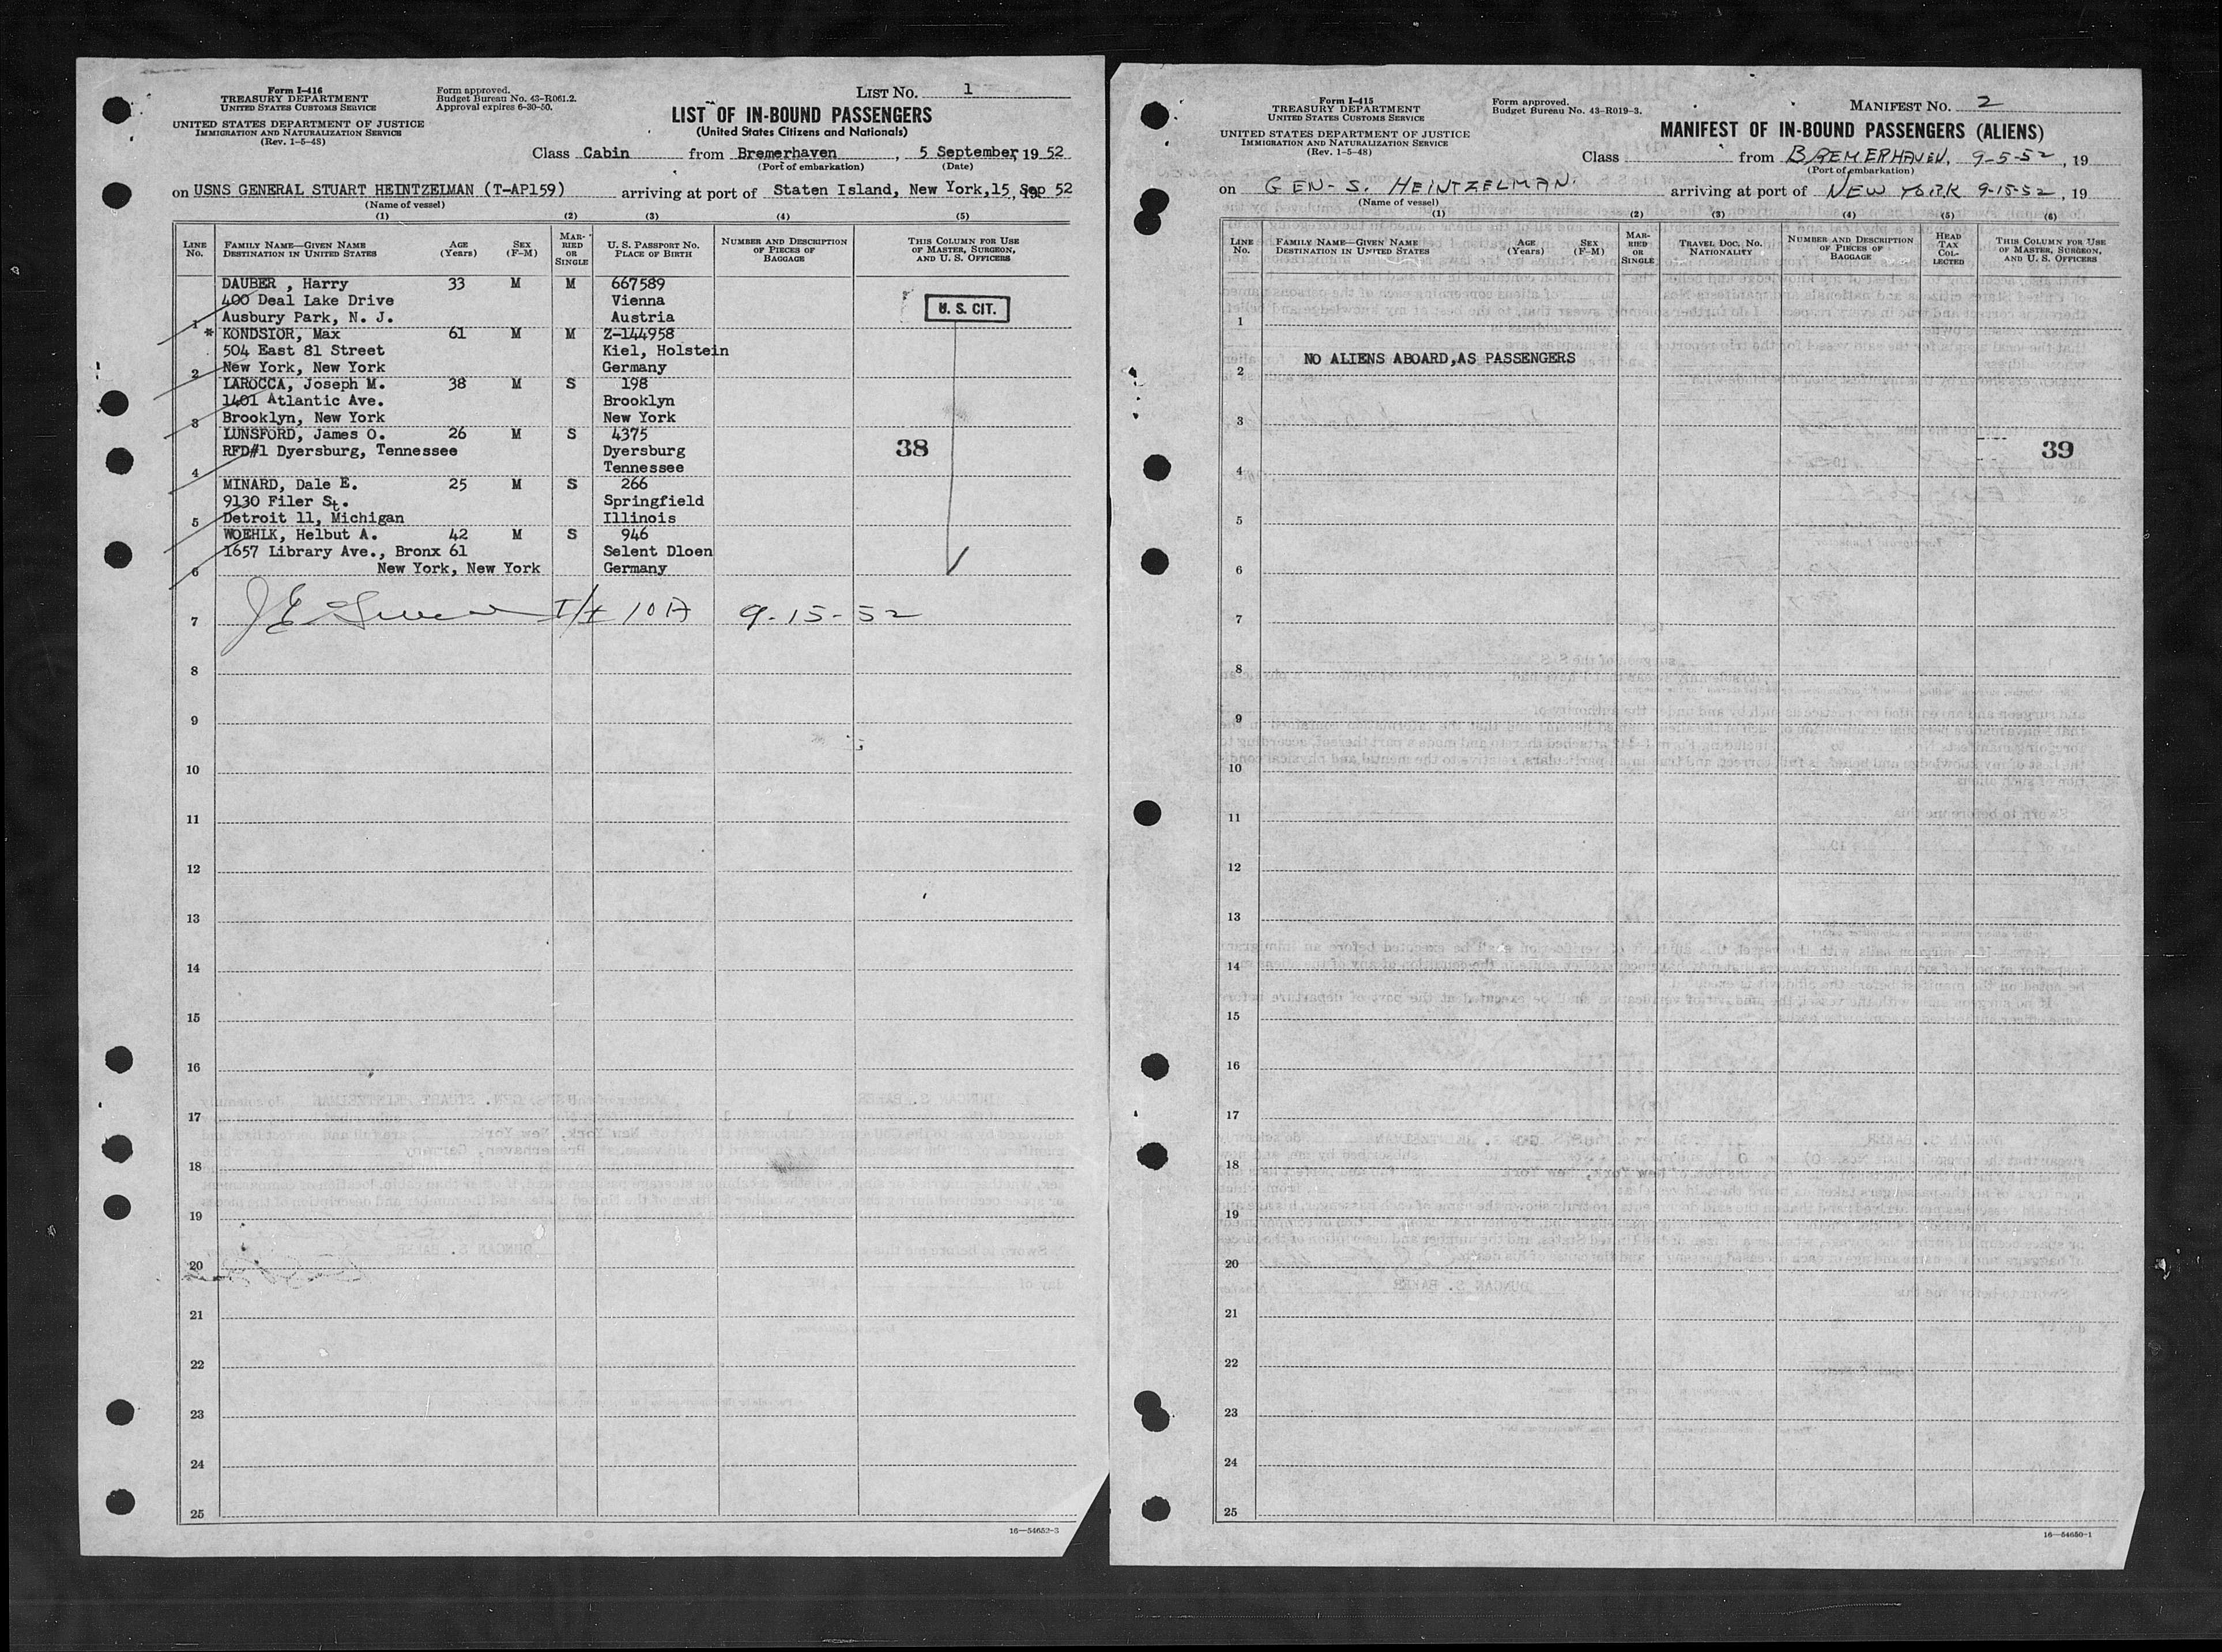 Form I-416
TREASURY DEPARTMENT
UNITED STATES CUSTOMS SERVICE
UNITED STATES DEPARTMENT OF JUSTICE
IMMIGRATION AND NATURALIZATION SERVICE
(Rev. 1-5-48)
Form approved.
Budget Bureau No. 43-R061.2.
Approval expires 6-30-50.
LIST NO. 1
LIST OF IN-BOUND PASSENGERS
(United States Citizens and Nationals)
Class Cabin from Bremerhaven, 5 September, 19 52
(Port of embarkation) (Date)
on USNS GENERAL STUART HEINTZELMAN (T-AP159) arriving at port of Staten Island, New York, 15 Sep 52
(Name of vessel)
(1) (2) (3) (4) (5)
LINE NO. FAMILY NAME—GIVEN NAME DESTINATION IN UNITED STATES AGE (Years) SEX (F-M) MARRIED OR SINGLE U. S. PASSPORT NO. PLACE OF BIRTH NUMBER AND DESCRIPTION OF PIECES OF BAGGAGE THIS COLUMN FOR USE OF MASTER, SURGEON, AND U. S. OFFICERS
DAUBER , Harry 33 M M 667589
400 Deal Lake Drive Vienna
1 Ausbury Park, N. J. Austria
U. S. CIT.
* KONDSIOR, Max 61 M M Z-144958
504 East 81 Street Kiel, Holstein
2 New York, New York Germany
LAROCCA, Joseph M. 38 M S 198
1401 Atlantic Ave. Brooklyn
3 Brooklyn, New York New York
LUNSFORD, James O. 26 M S 4375
RFD#1 Dyersburg, Tennessee Dyersburg 38
4 Tennessee
MINARD, Dale E. 25 M S 266
9130 Filer St. Springfield
5 Detroit 11, Michigan Illinois
WOEHLK, Helbut A. 42 M S 946
1657 Library Ave., Bronx 61 Selent Dloen
6 New York, New York Germany
7 9-15-52
8
9
10
11
12
13
14
15
16
17
18
19
20
21
22
23
24
25
16—54652-3
Form I-415
TREASURY DEPARTMENT
UNITED STATES CUSTOMS SERVICE
UNITED STATES DEPARTMENT OF JUSTICE
IMMIGRATION AND NATURALIZATION SERVICE
(Rev. 1-5-48)
Form approved.
Budget Bureau No. 43-R019-3.
MANIFEST NO. 2
MANIFEST OF IN-BOUND PASSENGERS (ALIENS)
Class from BREMERHAVEN, 9-5-52, 19
(Port of embarkation)
on GEN- S. HEINTZELMAN. arriving at port of NEW YORK 9-15-52, 19
(Name of vessel)
(1) (2) (3) (4) (5) (6)
LINE NO. FAMILY NAME—GIVEN NAME DESTINATION IN UNITED STATES AGE (Years) SEX (F-M) MARRIED OR SINGLE TRAVEL DOC. NO. NATIONALITY NUMBER AND DESCRIPTION OF PIECES OF BAGGAGE HEAD TAX COLLECTED THIS COLUMN FOR USE OF MASTER, SURGEON, AND U. S. OFFICERS
1
NO ALIENS ABOARD,AS PASSENGERS
2
3
39
4
5
6
7
8
9
10
11
12
13
14
15
16
17
18
19
20
21
22
23
24
25
16—54650-1